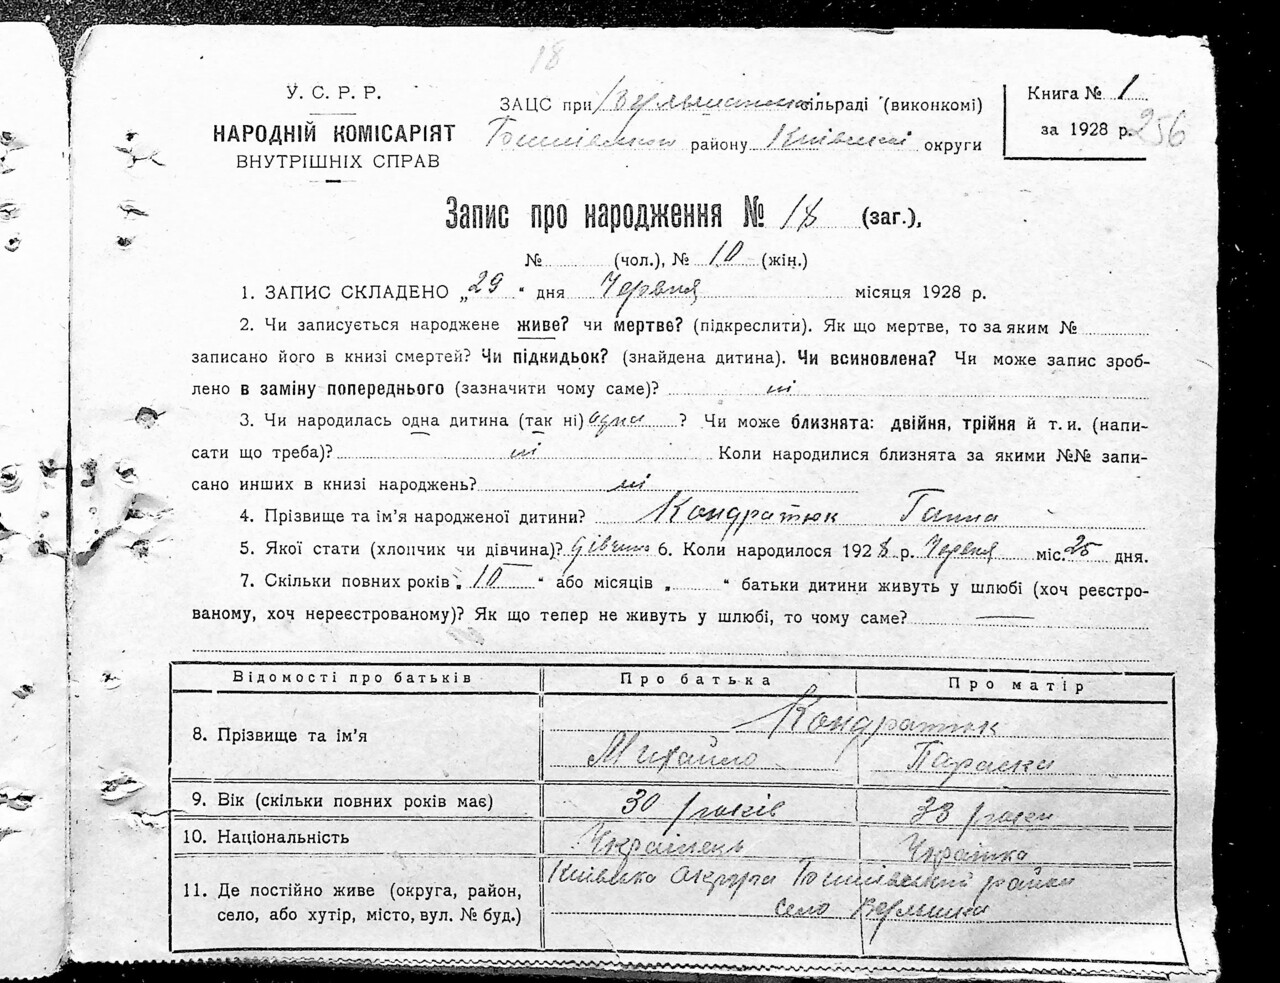 18
У. С. Р. Р.
НАРОДНІЙ КОМІСАРІЯТ
ВНУТРІШНІХ СПРАВ
ЗАЦС при сільраді (виконкомі)
району Київської округи
Книга № 1
за 1928 р. 256
Запис про народження № 18 (заг.),
№ (чол.), № 10 (жін.)
1. ЗАПИС СКЛАДЕНО „29“ дня Червня місяця 1928 р.
2. Чи записується народжене живе? чи мертве? (підкреслити). Як що мертве, то за яким №
записано його в книзі смертей? Чи підкидьок? (знайдена дитина). Чи всиновлена? Чи може запис зроб-
лено в заміну попереднього (зазначити чому саме)? ні
3. Чи народилась одна дитина (так ні) одна ? Чи може близнята: двійня, трійня й т. и. (напи-
сати що треба)? ні Коли народилися близнята за якими №№ запи-
сано инших в книзі народжень? ні
4. Прізвище та ім’я народженої дитини? Кондратюк Ганна
5. Якої стати (хлопчик чи дівчина)? дівчина 6. Коли народилося 1928 р. Червня міс. 25 дня.
7. Скільки повних років „10“ або місяців „ “ батьки дитини живуть у шлюбі (хоч реєстро-
ваному, хоч нереєстрованому)? Як що тепер не живуть у шлюбі, то чому саме? —
Відомості про батьків Про батька Про матір
8. Прізвище та ім’я Кондратюк
Михайло Параска
9. Вік (скільки повних років має) 30 років 33 роки
10. Національність Українець Українка
11. Де постійно живе (округа, район, Київська округа район
село, або хутір, місто, вул. № буд.) село